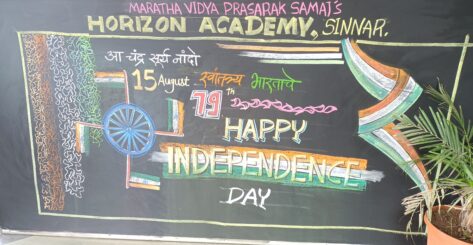 MARATHA VIDYA PRASARAK SAMAJ'S
HORIZON ACADEMY, SINNAR.
आ चंद्र सूर्य नांदो
15 August स्वातंत्र्य भारताचे
79th
HAPPY
INDEPENDENCE
DAY